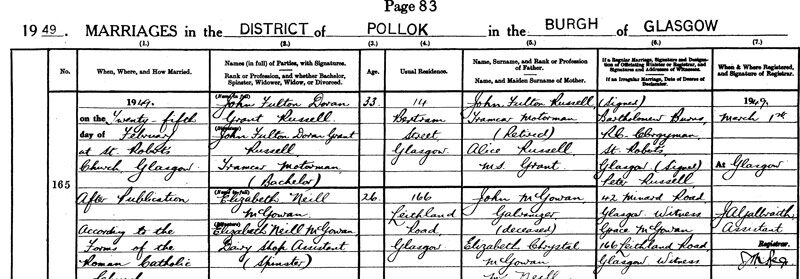 Page 83
1949. MARRIAGES in the DISTRICT of POLLOK in the BURGH of GLASGOW
(1.) (2.) (3.) (4.) (5.) (6.) (7.)
No.
When, Where, and How Married.
Names (in full) of Parties, with Signatures.
Rank or Profession, and whether Bachelor, Spinster, Widower, Widow, or Divorced.
Age.
Usual Residence.
Name, Surname, and Rank or Profession of Father.
Name, and Maiden Surname of Mother.
If a Regular Marriage, Signature and Designation of Officiating Minister or Registrar, and Signatures and Addresses of Witnesses.
If an Irregular Marriage, Date of Decree of Declarator.
When & Where Registered, and Signature of Registrar.
165
1949.
on the Twenty-fifth
day of February
at St. Roberts
Church, Glasgow
After Publication
According to the
Forms of the
Roman Catholic
Church
John Fulton Doran
Grant Russell
John Fulton Doran Grant
Russell
Tramcar Motorman
(Bachelor)
33
14
Bertram
Street
Glasgow
John Fulton Russell
Tramcar Motorman
(Retired)
Alice Russell
M.S. Grant
(Signed)
Bartholomew Burns,
R.C. Clergyman
St. Roberts,
Glasgow (Signed)
Peter Russell
42 Minard Road
Glasgow Witness
Grace McGowan
166 Leithland Road
Glasgow Witness
1949.
March 1st
At Glasgow
J A Galbraith
Assistant
Registrar.
Elizabeth Neill
McGowan
Elizabeth Neill McGowan
Dairy Shop Assistant
(Spinster)
26
166
Leithland
Road
Glasgow
John McGowan
Galvanizer
(deceased)
Elizabeth Chrystal
McGowan
M.S. Neill